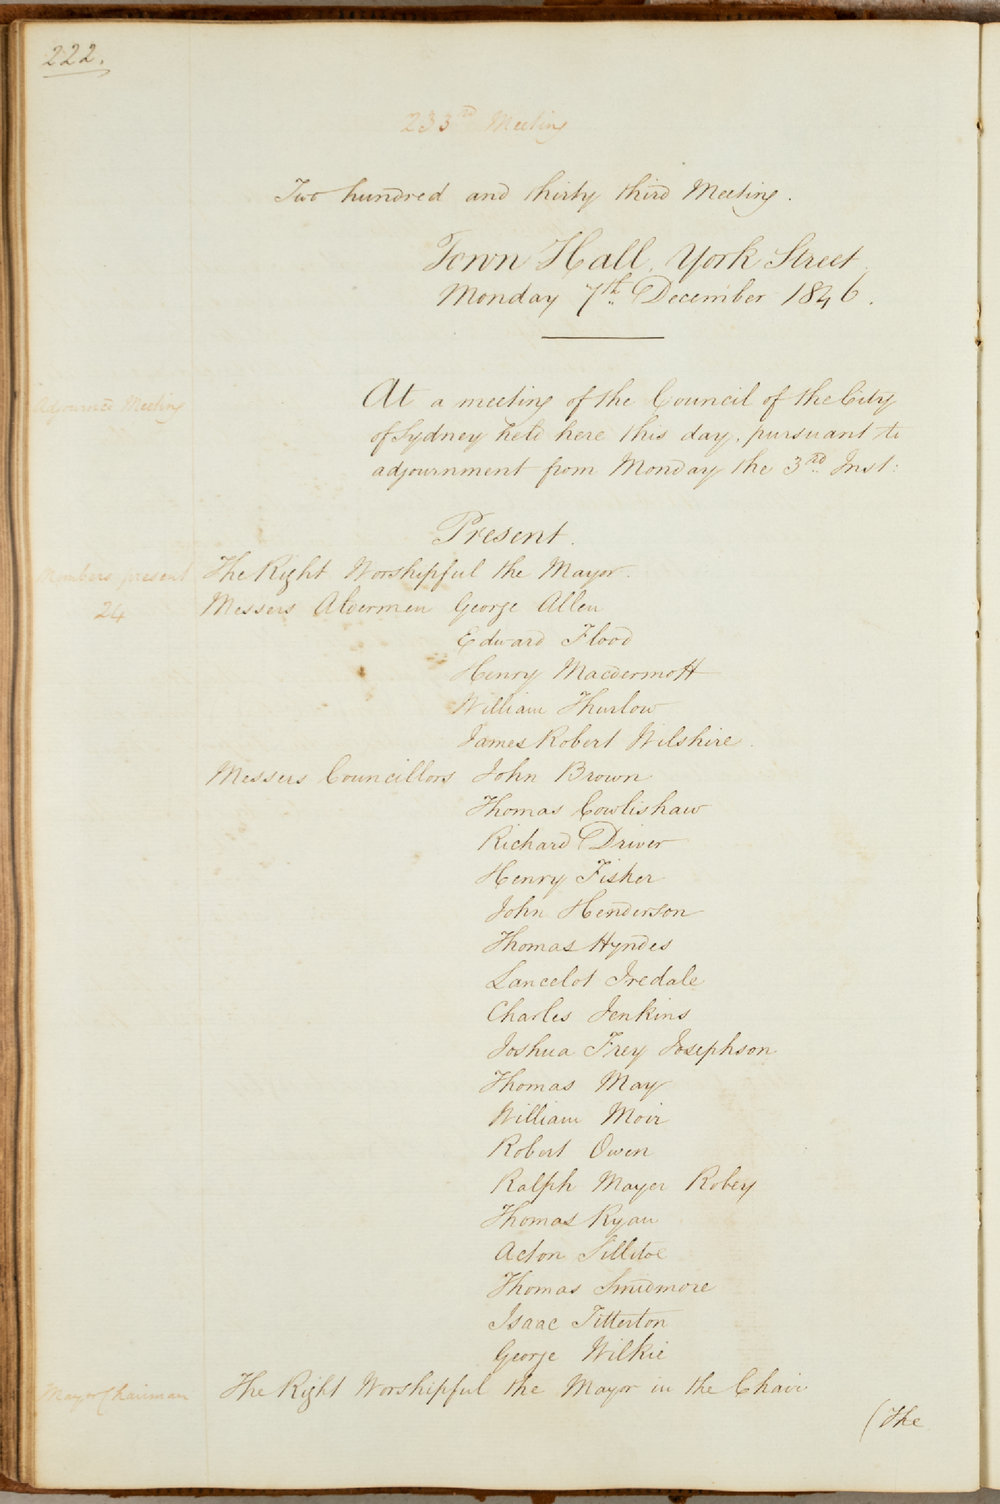 222.
233rd Meeting
Two hundred and thirty third Meeting.
Town Hall, York Street
Monday 7th December 1846.
Adjourned Meeting
At a meeting of the Council of the City
of Sydney held here this day, pursuant to
adjournment from Monday the 3rd Inst:
Present.
Members present The Right Worshipful the Mayor.
24 Messers Aldermen George Allen
Edward Flood
Henry Macdermott
William Thurlow
James Robert Wilshire.
Messers Councillors John Brown
Thomas Cowlishaw
Richard Driver
Henry Fisher
John Henderson
Thomas Hyndes
Lancelot Iredale
Charles Jenkins
Joshua Frey Josephson
Thomas May
William Moir
Robert Owen
Ralph Mayer Robey
Thomas Ryan
Acton Sillitoe
Thomas Smidmore
Isaac Titterton
George Wilkie
Mayor Chairman The Right Worshipful the Mayor in the Chair
(The